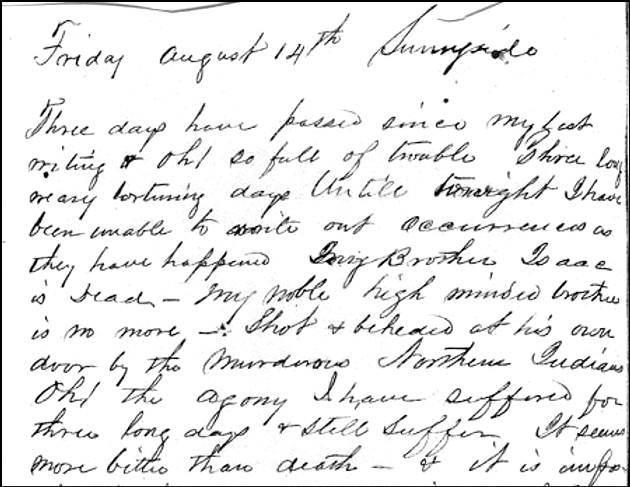 Friday August 14th Sunnyside
Three days have passed since my last
writing & Oh! so full of trouble Three long
weary torturing days Untill tonight I have
been unable to write out occurrences as
they have happened My Brother Isaac
is Dead – My noble high minded brother
is no more – Shot & beheaded at his own
door by the Murderous Northern Indians
Oh! the agony I have suffered for
three long days & still suffer It seems
more bitter than death – & it is impo-